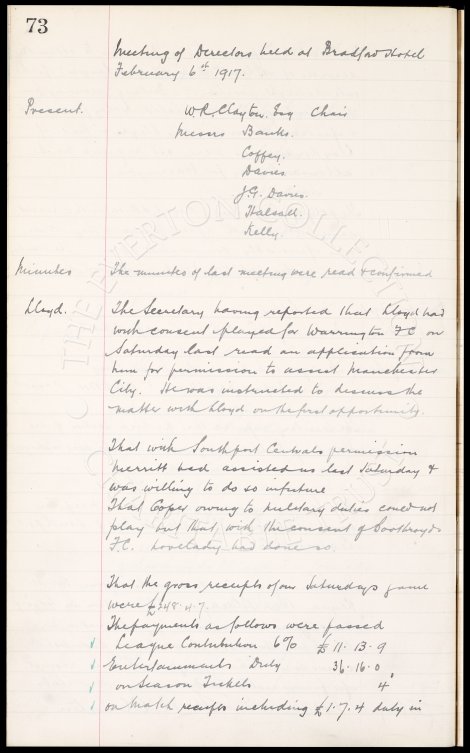 73
Meeting of Directors held at Bradford Hotel
February 6th 1917.
Present. W.R. Clayton, Esq Chair
Messrs Banks.
Coffey.
Davies
J.G. Davies.
Halsall.
Kelly.
Minutes The minutes of last meeting were read & confirmed
Lloyd. The Secretary having reported that Lloyd had
with consent played for Warrington FC on
Saturday last read an application from
him for permission to assist Manchester
City. He was instructed to discuss the
matter with Lloyd on the first opportunity.
That with Southport Centrals permission
Merritt had assisted us last Saturday &
was willing to do so in future
That Cooper owing to military duties could not
play but that with the consent of
F.C. Lovelady had done so.
That the gross receipts of our Saturdays game
were £248.4.7.
The payments as follows were passed
League Contribution 6% £11.13.9
Entertainments Duty 36.16.0
on Season Tickets 4
on Match receipts including £1.7.4 duty in
THE EVERTON COLLECTION